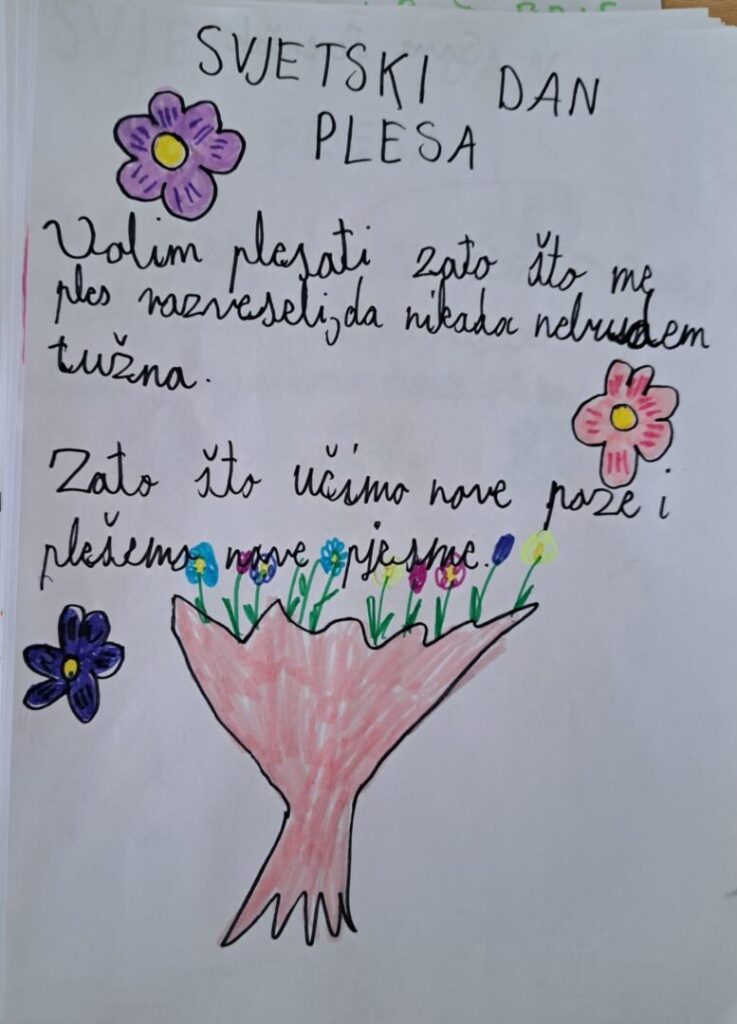 SVJETSKI DAN
PLESA
Volim plesati zato što me
ples razveseli, da nikada nebudem
tužna.
Zato što učimo nove poze i
plešemo nove pjesme.